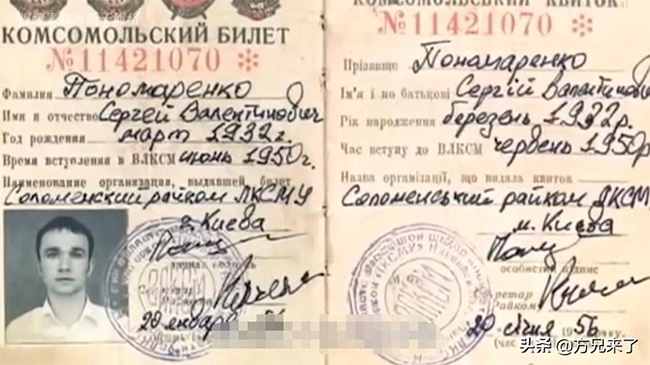 КОМСОМОЛЬСКИЙ БИЛЕТ
№11421070
Фамилия Пономаренко
Имя и отчество Сергей Валентинович
Год рождения март 1932г.
Время вступления в ВЛКСМ июнь 1950г.
Наименование организации, выдавшей билет
Соломенский райком ЛКСМУ
г. Киева
20 января 56
КОМСОМОЛЬСЬКИЙ КВИТОК
№11421070
Прізвище Пономаренко
Ім'я і по батькові Сергій
Рік народження березень 1932р.
Час вступу до ВЛКСМ червень 1950р
Назва організації, що видала квиток
Соломенський райком ЛКСМ
м. Києва
особистий підпис
20 січня 56
头条 @方兄来了